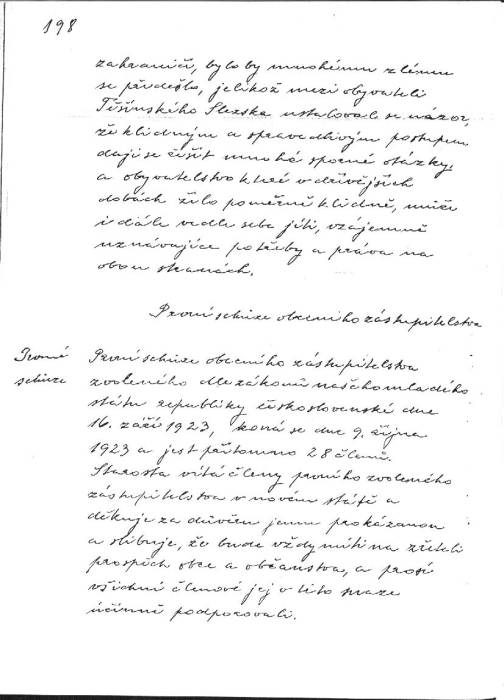 198
zahraničí, bylo by mnohému zlému
se předešlo, jelikož mezi obyvateli
Těšínského Slezska ustalovala se názor,
že klidným a spravedlivým postupem
dají se řešit mnohé sporné otázky,
a obyvatelstvo které v dřívějších
dobách žilo poměrně klidně, může
i dále vedle sebe jíti, vzájemně
uznávajíce potřeby a práva na
obou stranách.
První schůze obecního zastupitelstva
První
schůze
První schůze obecního zástupitelstva
zvoleného dle zákonů našeho mladého
státu republiky československé dne
16. září 1923, koná se dne 9. října
1923 a jest přítomno 28 členů.
Starosta vítá členy prvního zvoleného
zástupitelstva v novém státě a
děkuje za důvěru jemu prokázanou
a slibuje, že bude vždy míti na zřeteli
prospěch obce a občanstva, a prosí
všichni členové jej v této snaze
účinně podporovali.